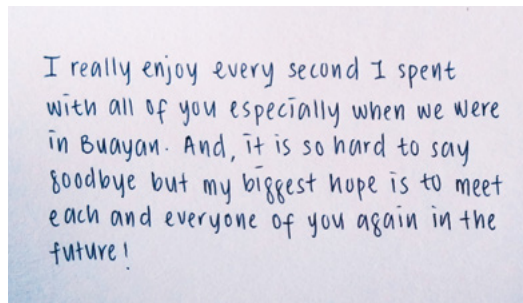 I really enjoy every second I spent
with all of you especially when we were
in Buayan. And, it is so hard to say
goodbye but my biggest hope is to meet
each and everyone of you again in the
future!